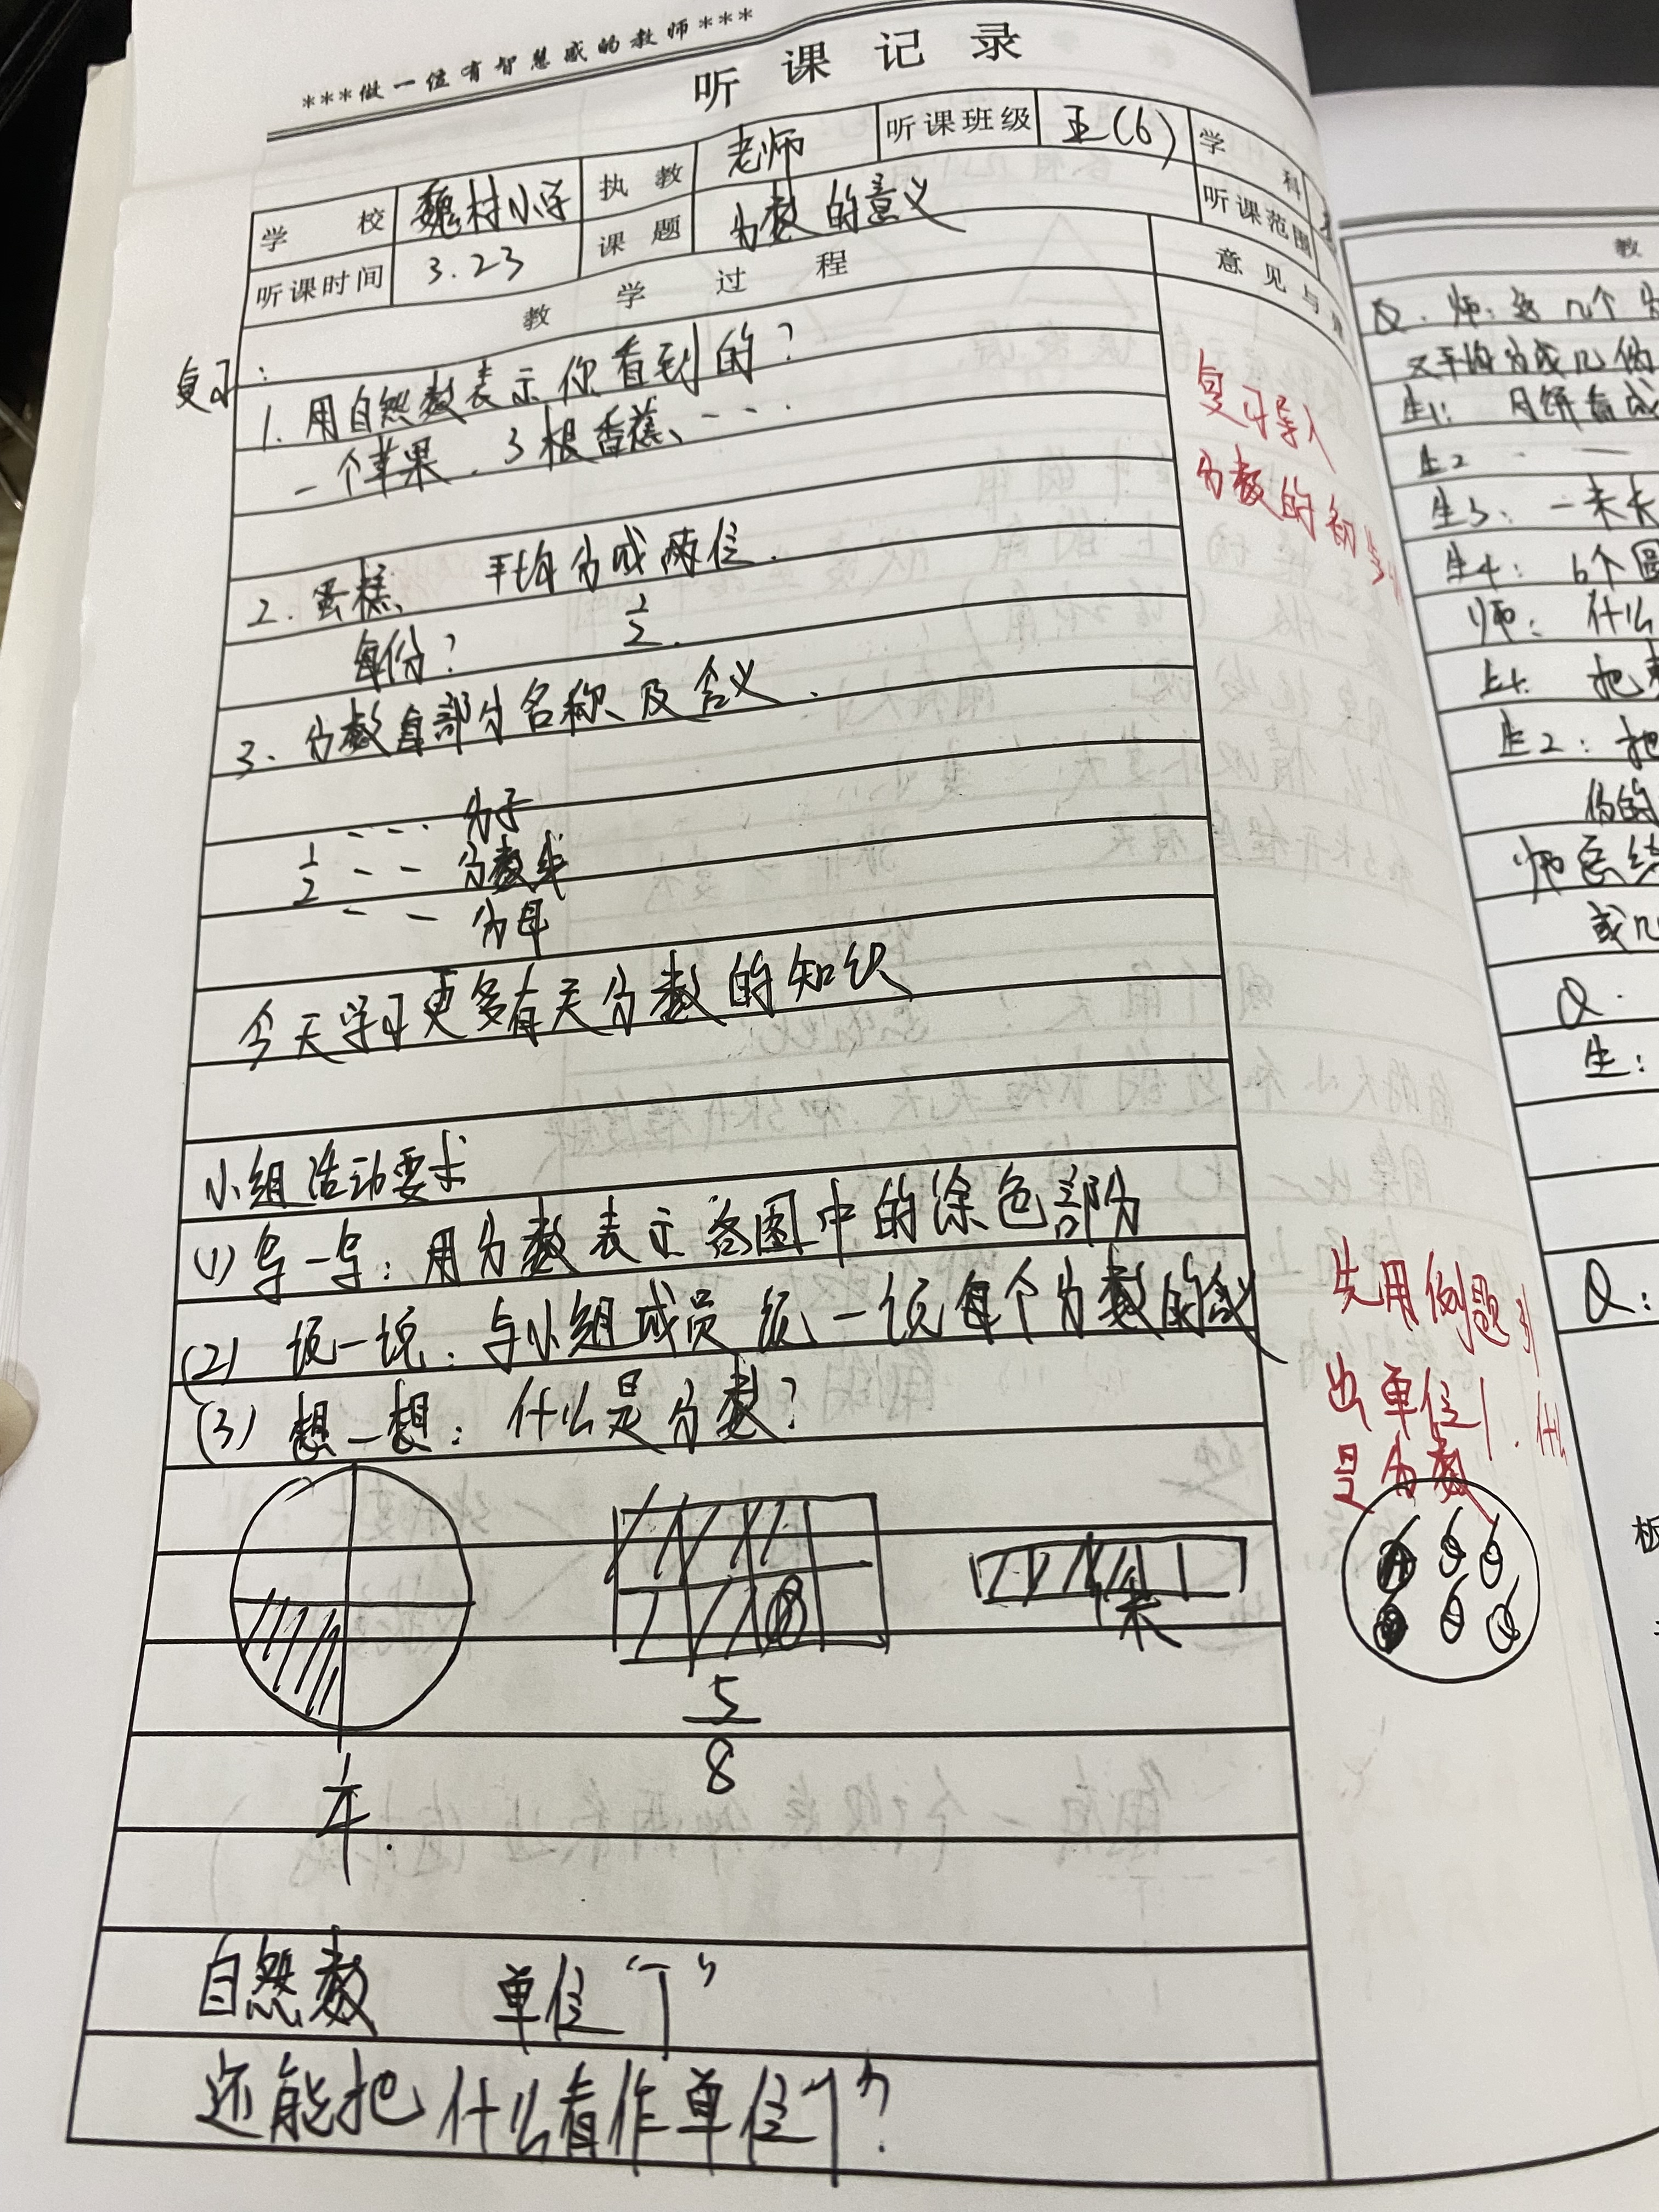 ***做一位有智慧感的教师***
听课记录
学校 魏村小学 执教 老师 听课班级 五(6) 学科
听课时间 3.23 课题 分数的意义 听课范围
教学过程 意见与
复习:
1. 用自然数表示你看到的?
一个苹果、3根香蕉、……
复习导入
分数的初
2. 蛋糕、 平均分成两份.
每份? 1/2.
3. 分数各部分名称及含义.
--- 分子
1/2 -- 分数线
-- 分母
今天学习更多有关分数的知识
小组活动要求
(1) 写一写:用分数表示各图中的涂色部分
(2) 说一说:与小组成员说一说每个分数的含义
(3) 想一想:什么是分数?
先用例题引
出单位1.什么
是分数
1米
1/4.
5/8
自然数 单位“1”
还能把什么看作单位“1”?
教
Q. 师:这几个
又平均分成几份
生1: 月饼看成
生2 - —
生3: 一米长
生4: 6个圆
师: 什么
生1: 把
生2: 把
份的
师总结
或几
Q.
生:
Q:
板